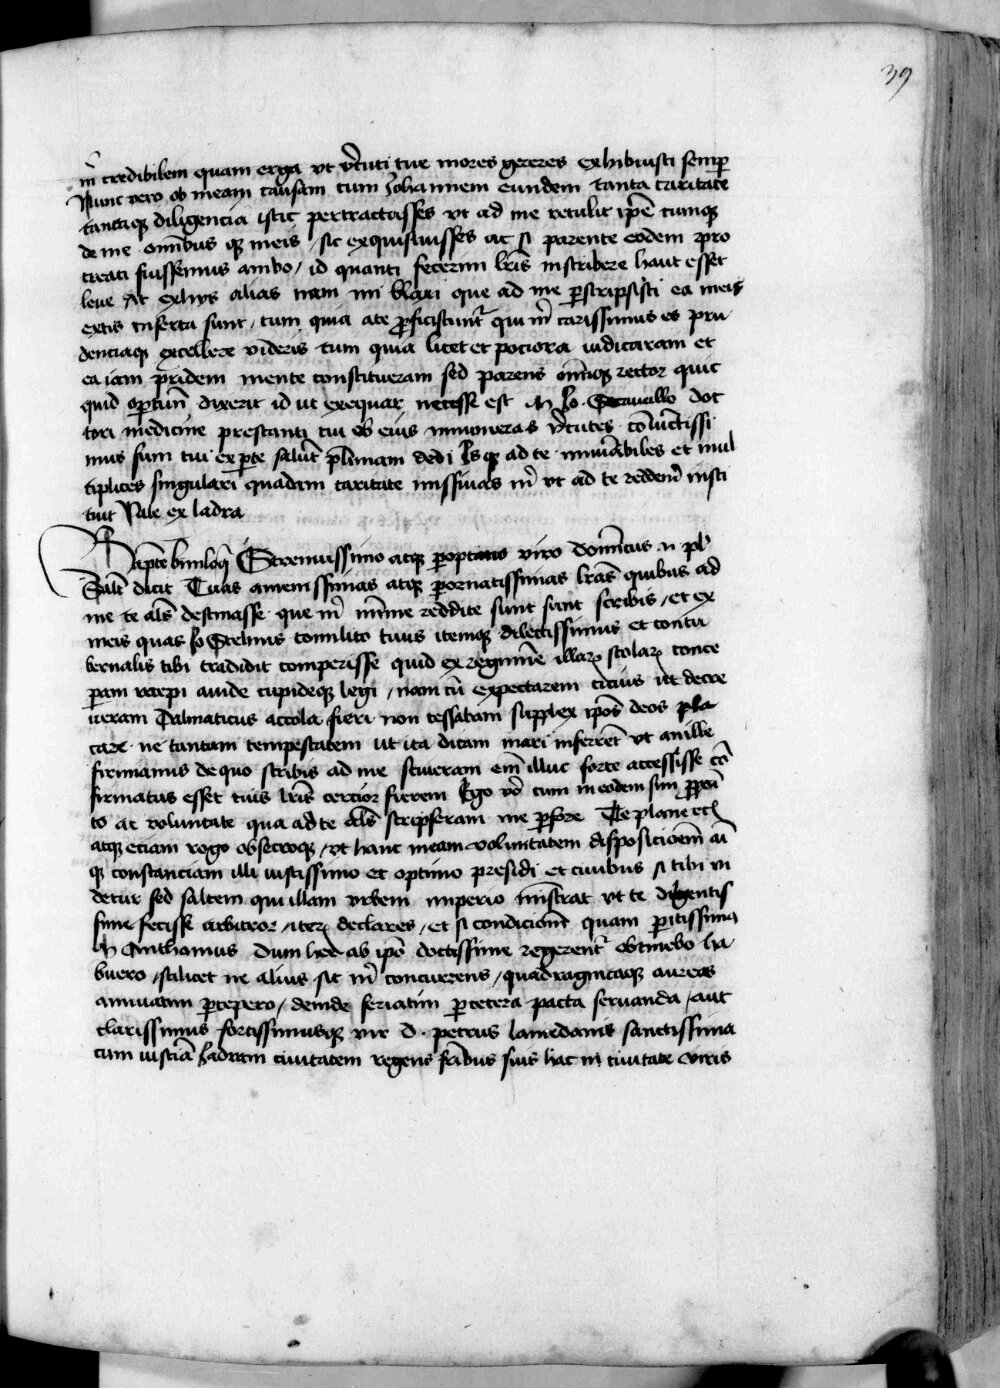 39
m̄ credibilem quam erga vt v̄tuti tue mores gereres exhibuisti semp
Nunc vero ob meam causam cum Johannem eundem tanta caritate
tantaqꝫ diligencia istic pertractasses vt ad me retulit ip̄e cumqꝫ
de me omībus qꝫ meis / sic exquisiuisses ac si parente eodem pro
creati fuissemus ambo / id quanti fecerim lr̄is inscribere haut esset
leue At exhys alias nam mi que ad me ꝑscripsisti ea meis
extis inserta sunt / tum quia ate ꝓficiscunt᷑ qui m̄ carissimus es pru
denciaqꝫ excellere videris tum quia licet et pociora iudicaram et
ea iam pridem mente constitueram sed parens rector quic
quid dixerit id ut exequar necesse est Jo. dot
tori medicine prestanti tui ob eius innumeras v̄tutes
mus sum tui ex ꝑte salut̄ pl̄imam dedi qꝫ ad te et mul
tiplices singulari quadam caritate missiuas m̄ vt ad te redderē insti
tuit Vale ex Iadra
Strenuissimo atqꝫ viro
Salt̄ dicit Tuas amenissimas atqꝫ ꝑornatissimas lr̄as quibus ad
me te als̄ destinasse que m̄ mīme reddite sunt sunt scribis / et ex
meis quas Jo Stelinus comilito tuus itemqꝫ dilectissimus et contu
bernalis tibi tradidit comperisse quid ex regimīe illaꝝ scolaꝝ conce
ꝑam auide cupideqꝫ legi / nam cū expectarem cicius ut decre
ueram Dalmaticus accola fieri non cessabam supplex ip̄os deos pla
care ne tantam tempestatem ut ita dicam mari inferrēt vt an ille
firmanus de quo scribis ad me sciueram em̄ illuc forte accessisse cō
firmatus esset tuis lr̄is cercior fierem Ego v̄o cum in eodem sim
to ac voluntate qua ad te als̄ scripseram me ꝑfore Te plane
atqꝫ etiam rogo obsecroqꝫ / vt hanc meam voluntatem disposicionem aī
qꝫ constanciam illi iustissimo et optimo presidi et ciuibus si tibi vi
detur sed saltem qui illam vrbem imperio vt te diligentis
sime fecisse arbitror / iteꝝ declares / et si condicionē quam ꝑitissimus
Anthonius dum hec ab ip̄o doctissime regerent᷑ obtinebo ha
buero / scilicet ne alius sit m̄ concurrens / quadragintaqꝫ aureos
annuatim ꝑcepero / deinde seriatim ꝑ cetera pacta seruanda / aut
clarissimus fortissimusqꝫ vir d. petrus lauredanus sanctissima
cum iusticia Iadram ciuitatem regens fr̄ibus suis hac in ciuitate viris